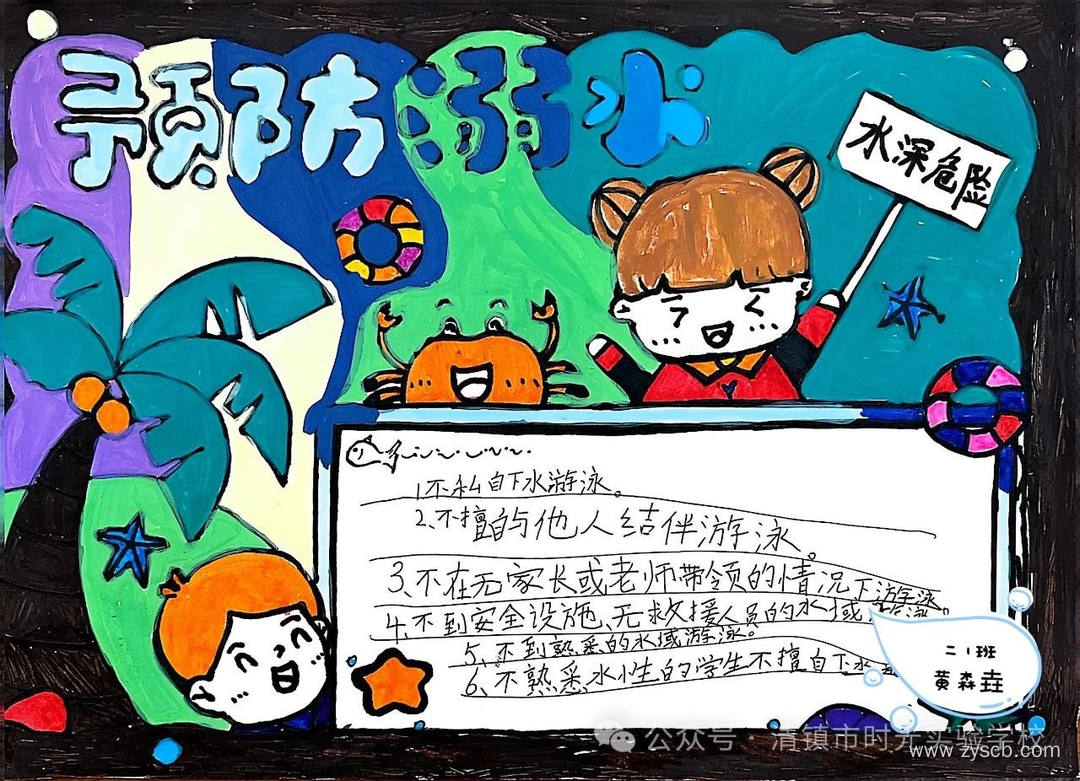 预防溺水
水深危险
1不私自下水游泳。
2、不擅自与他人结伴游泳。
3、不在无家长或老师带领的情况下游泳。
4、不到安全设施、无救援人员的水域游泳。
5、不到熟悉的水域游泳。
6、不熟悉水性的学生不擅自下水
二1班
黄森垚
公众号·清镇市时光实验学校
www.zyscb.com